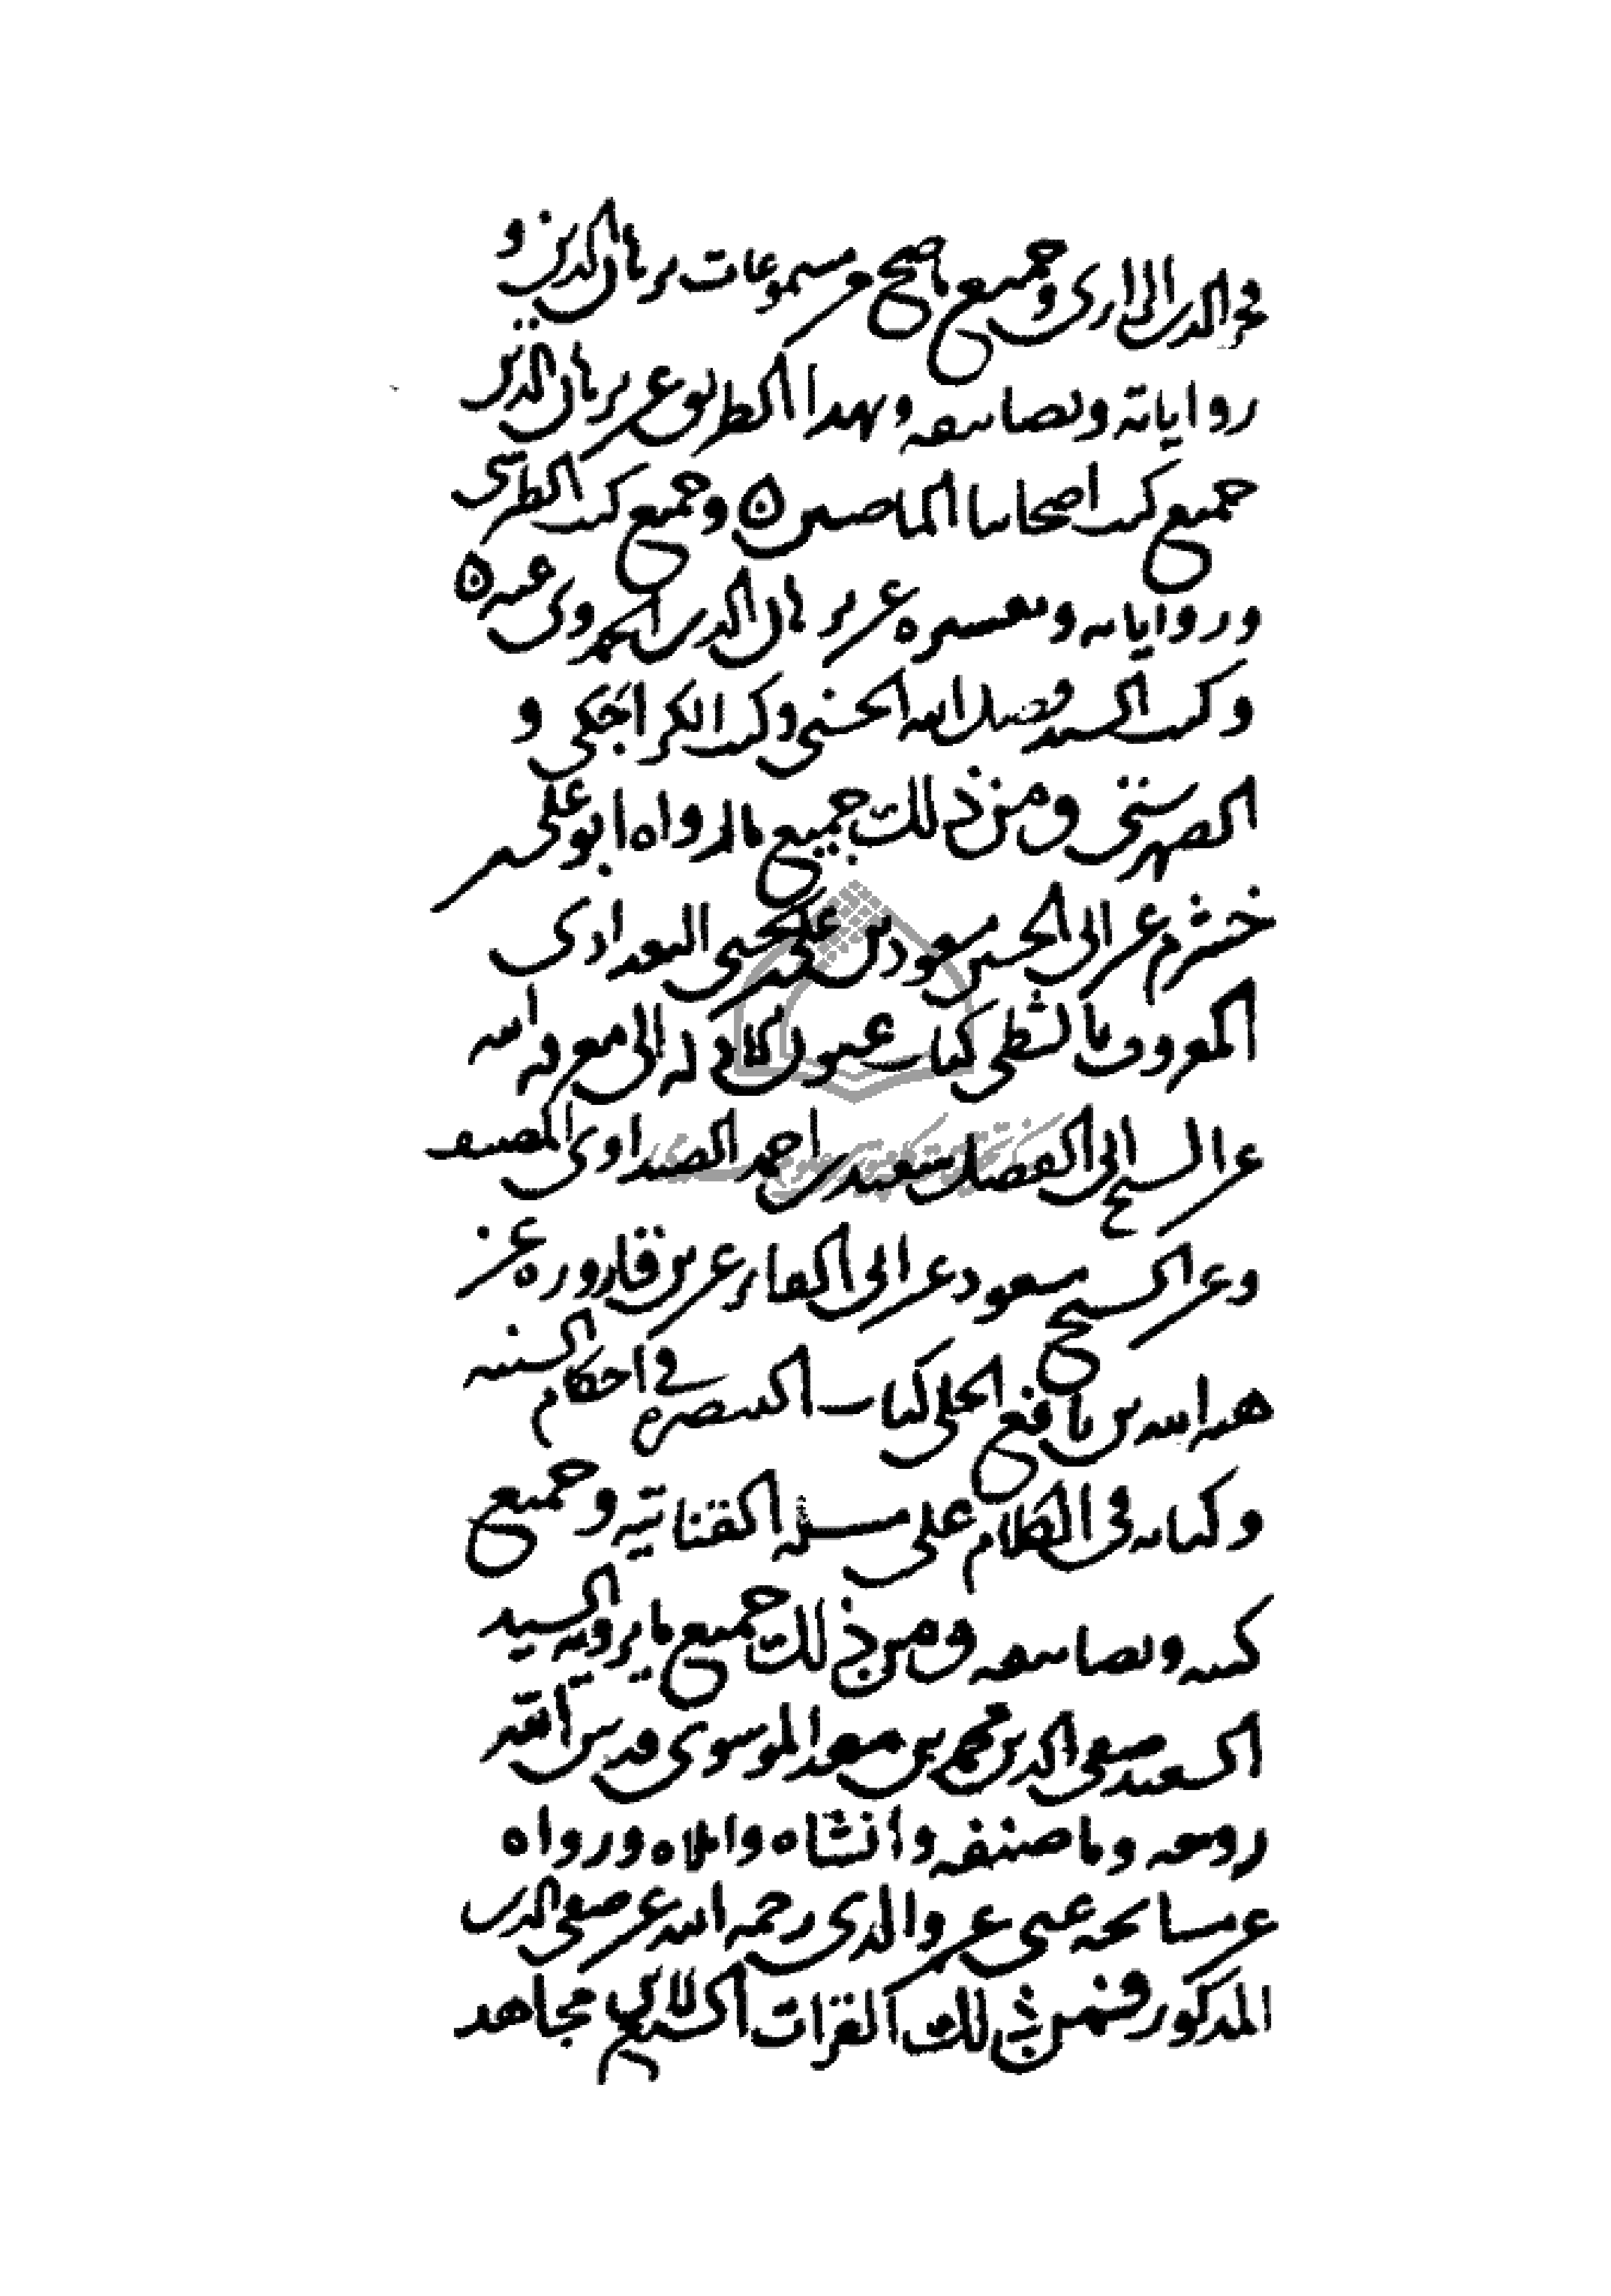 فخر الدين الرازي وجميع ما صح من مسموعات برهان الدين و
رواياته وتصانيفه وبهذا الطريق عن برهان الدين
جميع كتب اصحابنا الماضين ٥ وجميع كتب الطبرسي
ورواياته وتفسيره عن برهان الدين الحمدوي عنه ٥
وكتب السيد فضل الله الحسني وكتب الكراجكي و
الصهرشتي ومن ذلك جميع ما رواه ابو علي بن
خشرم عن ابي الحسن سعود بن علي بن يحيى البغدادي
المعروف بالشطي كتاب عيون الادلة الى معرفة الله
عن الشيخ ابي الفضل سعيد بن احمد الصيداوي المصنف
وعن الشيخ سعود عن ابي الفائز عن بن قارورة عن
هبة الله بن نافع الحلي كتاب التبصرة في احكام السنة
وكتابه في الكلام على مسئلة القناتية وجميع
كتبه وتصانيفه ومن ذلك جميع ما يرويه السيد
السعيد صفي الدين محمد بن معد الموسوي قدس الله
روحه وما صنفه وانشاه واملاه ورواه
عن مشايخه عني عن والدي رحمه الله عن صفي الدين
المذكور فمن ذلك القرات السبع لابن مجاهد